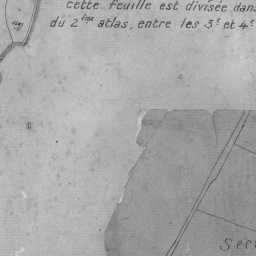 cette feuille est divisée dans
du 2ème atlas, entre les 3e et 4e
Ser